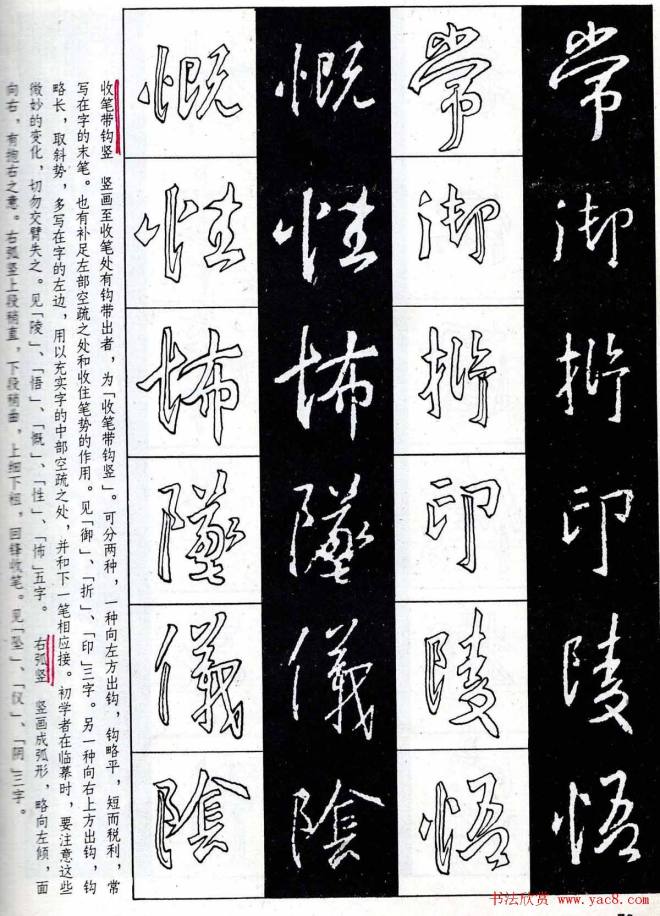 常
御
折
印
陵
悟
常
御
折
印
陵
悟
慨
性
怖
墜
儀
陰
慨
性
怖
墜
儀
陰
收笔带钩竖 竖画至收笔处有钩带出者，为「收笔带钩竖」。可分两种，一种向左方出钩，钩略平，短而税利，常
写在字的末笔。也有补足左部空疏之处和收住笔势的作用。见「御」、「折」、「印」三字。另一种向右上方出钩，钩
略长，取斜势，多写在字的左边，用以充实字的中部空疏之处，并和下一笔相应接。初学者在临摹时，要注意这些
微妙的变化，切勿交臂失之。见「陵」、「悟」、「慨」、「性」、「怖」五字。 右弧竖 竖画成弧形，略向左倾，面
向右，有抱右之意。右弧竖上段稍直，下段稍曲，上细下粗，回锋收笔。见「坠」、「仪」、「阴」三字。
书法欣赏 www.yac8.com